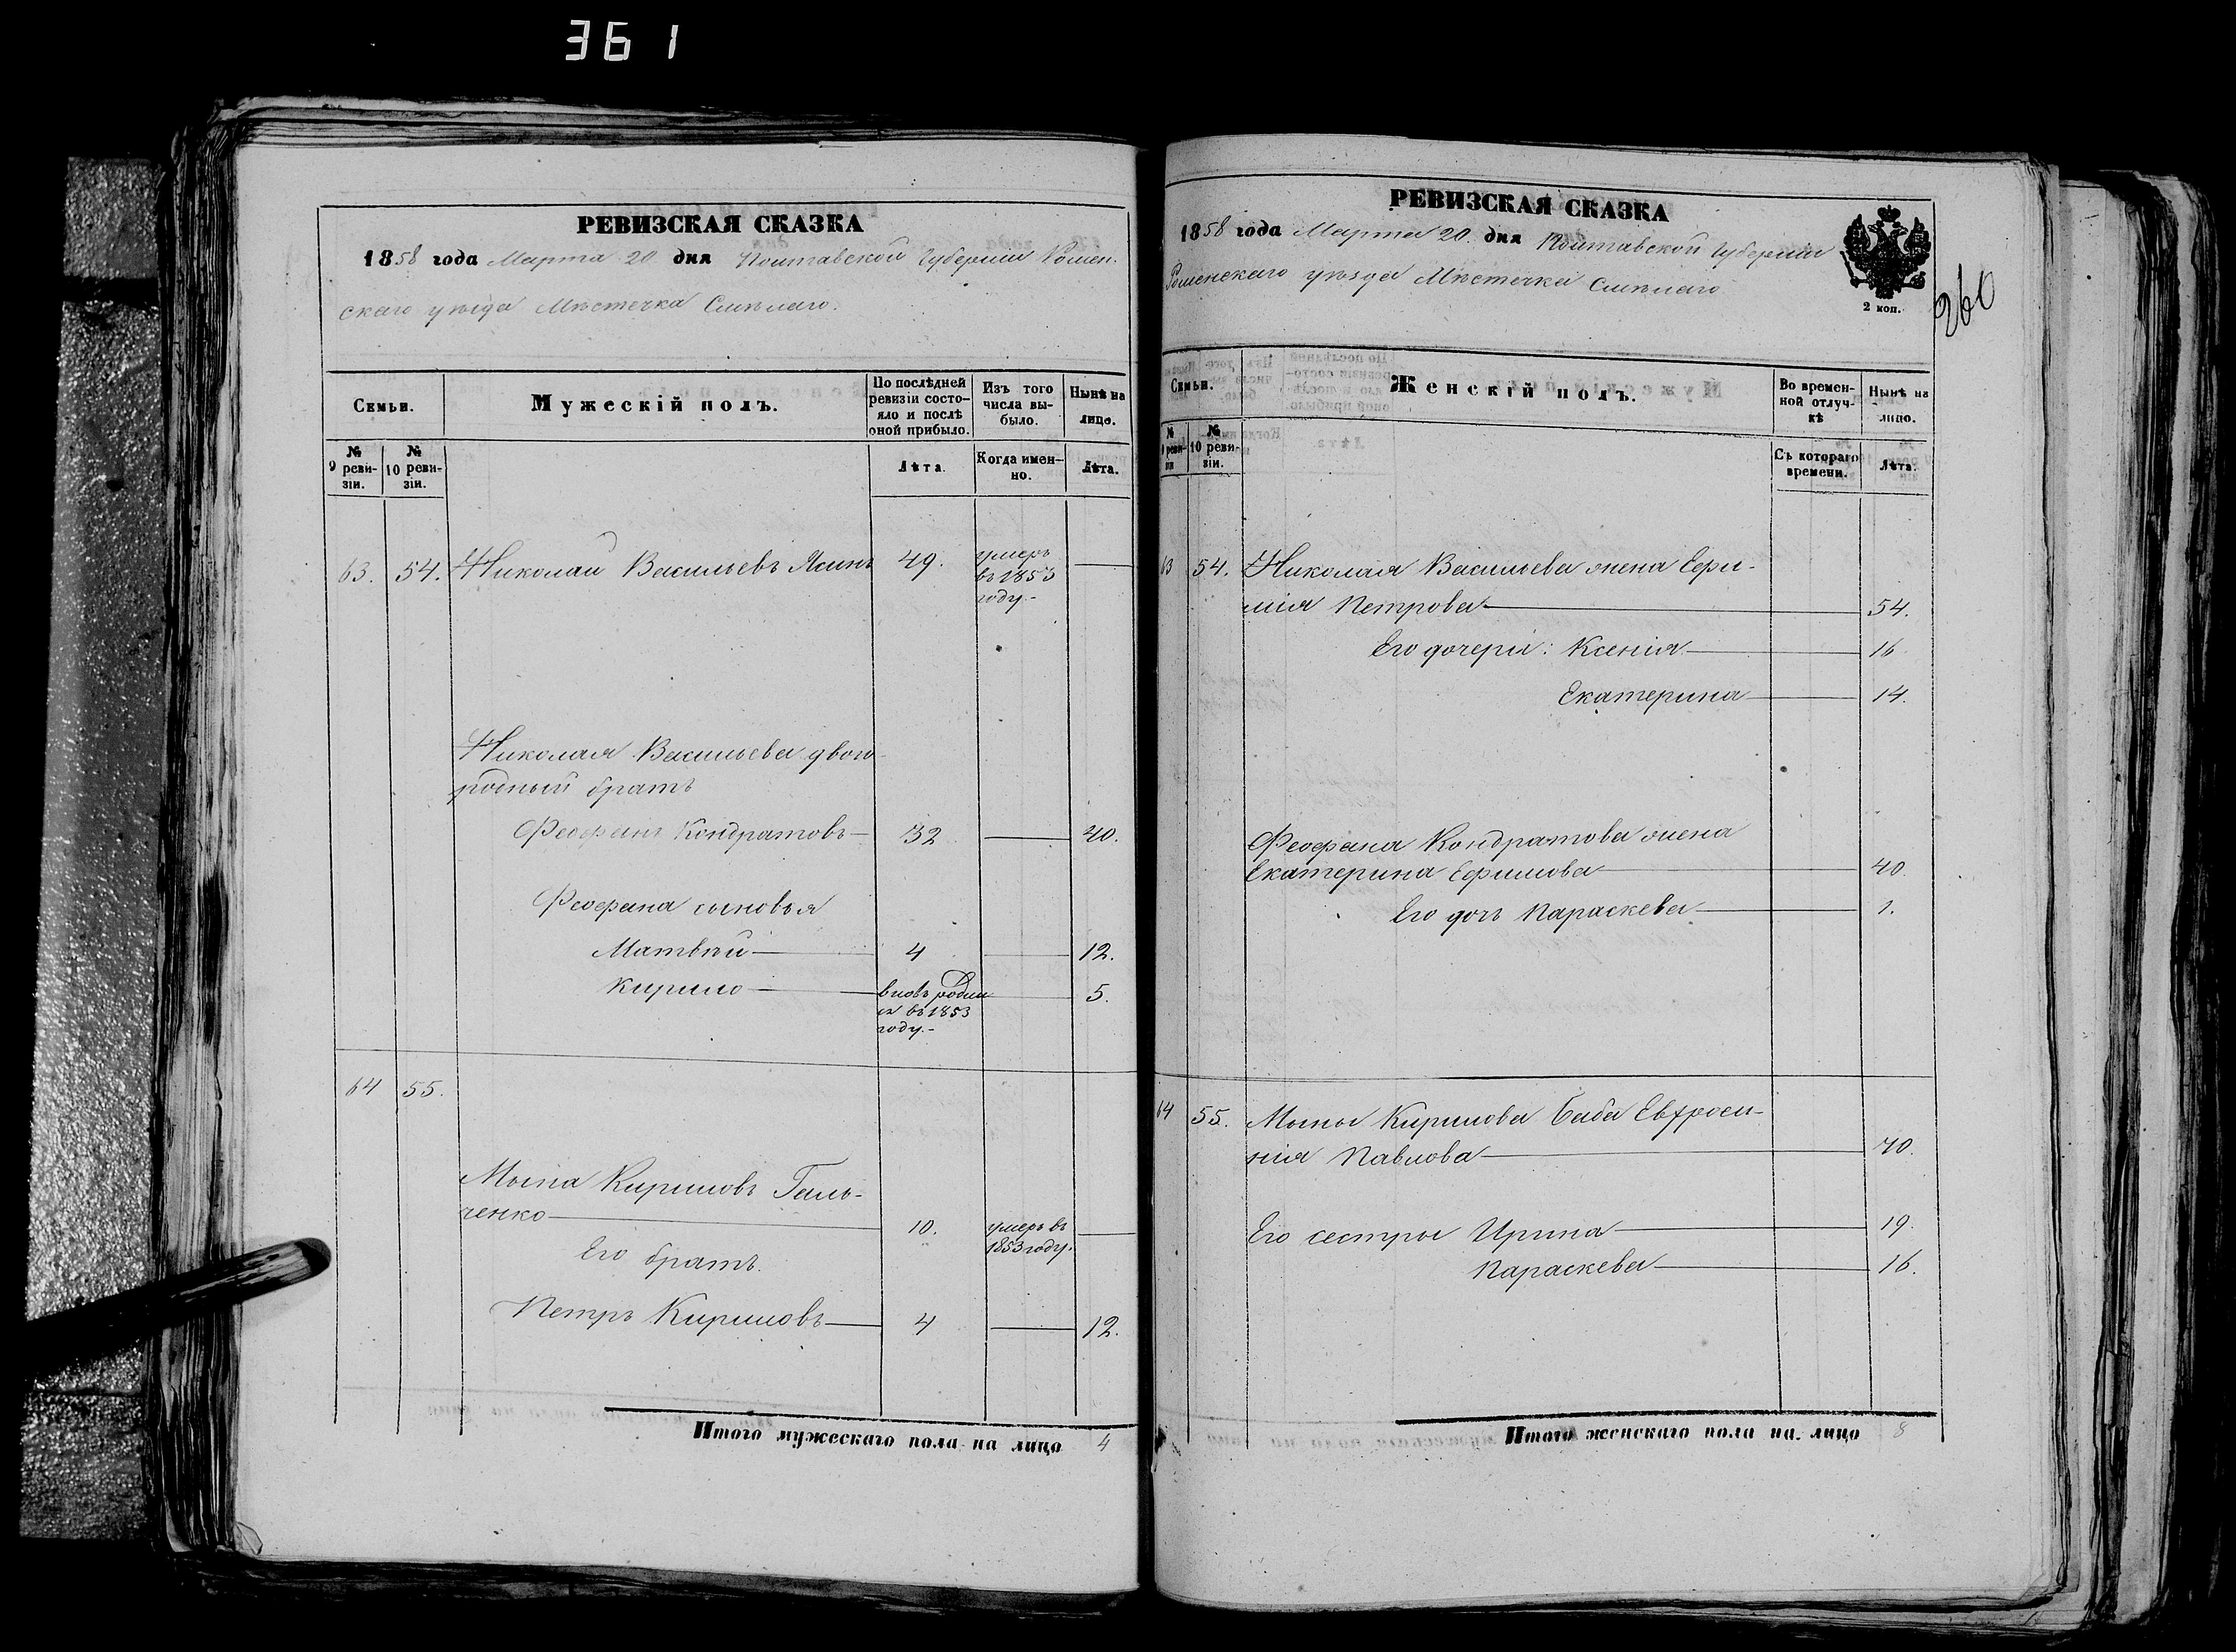 361
РЕВИЗСКАЯ СКАЗКА
1858 года Марта 20 дня Полтавской Губерніи Ромен-
скаго уѣзда Мѣстечка Смѣлаго.
Семьи.
Мужескій полъ.
По послѣдней ревизіи состояло и послѣ оной прибыло.
Изъ того числа выбыло.
Нынѣ на лицо.
№ 9 ревизіи.
№ 10 ревизіи.
Лѣта.
Когда именно.
Лѣта.
63. 54. Николай Васильевъ Ясинъ 49. умеръ
въ 1853
году.-
Николая Васильева двою-
родный братъ
Феофанъ Кондратовъ 32 40.
Феофана сыновья
Матвѣй 4 12.
Кирило вновь родил 5.
ся въ 1853
году.-
64 55.
Мына Кириловъ Галь-
ченко 10. умеръ въ
1853 году.
Его братъ.
Петръ Кириловъ 4 12.
Итого мужескаго пола на лицо 4
РЕВИЗСКАЯ СКАЗКА
1858 года Марта 20. дня Полтавской Губерніи
Роменскаго уѣзда Мѣстечка Смѣлаго
2 коп.
260
Семьи.
Женскій полъ.
Во временной отлучкѣ
Нынѣ на лицо.
№ 9 ревизіи
№ 10 ревизіи.
Съ котораго времени.
Лѣта.
63 54. Николая Васильева жена Ефи-
мія Петрова 54.
Его дочери: Ксенія 16
Екатерина 14.
Феофана Кондратова жена
Екатерина Ефимова 40.
Его дочь Параскева 1.
64 55. Мыны Кирилова баба Евфроси-
нія Павлова 70.
Его сестры Ирина 19.
Параскева 16.
Итого женскаго пола на лицо 8